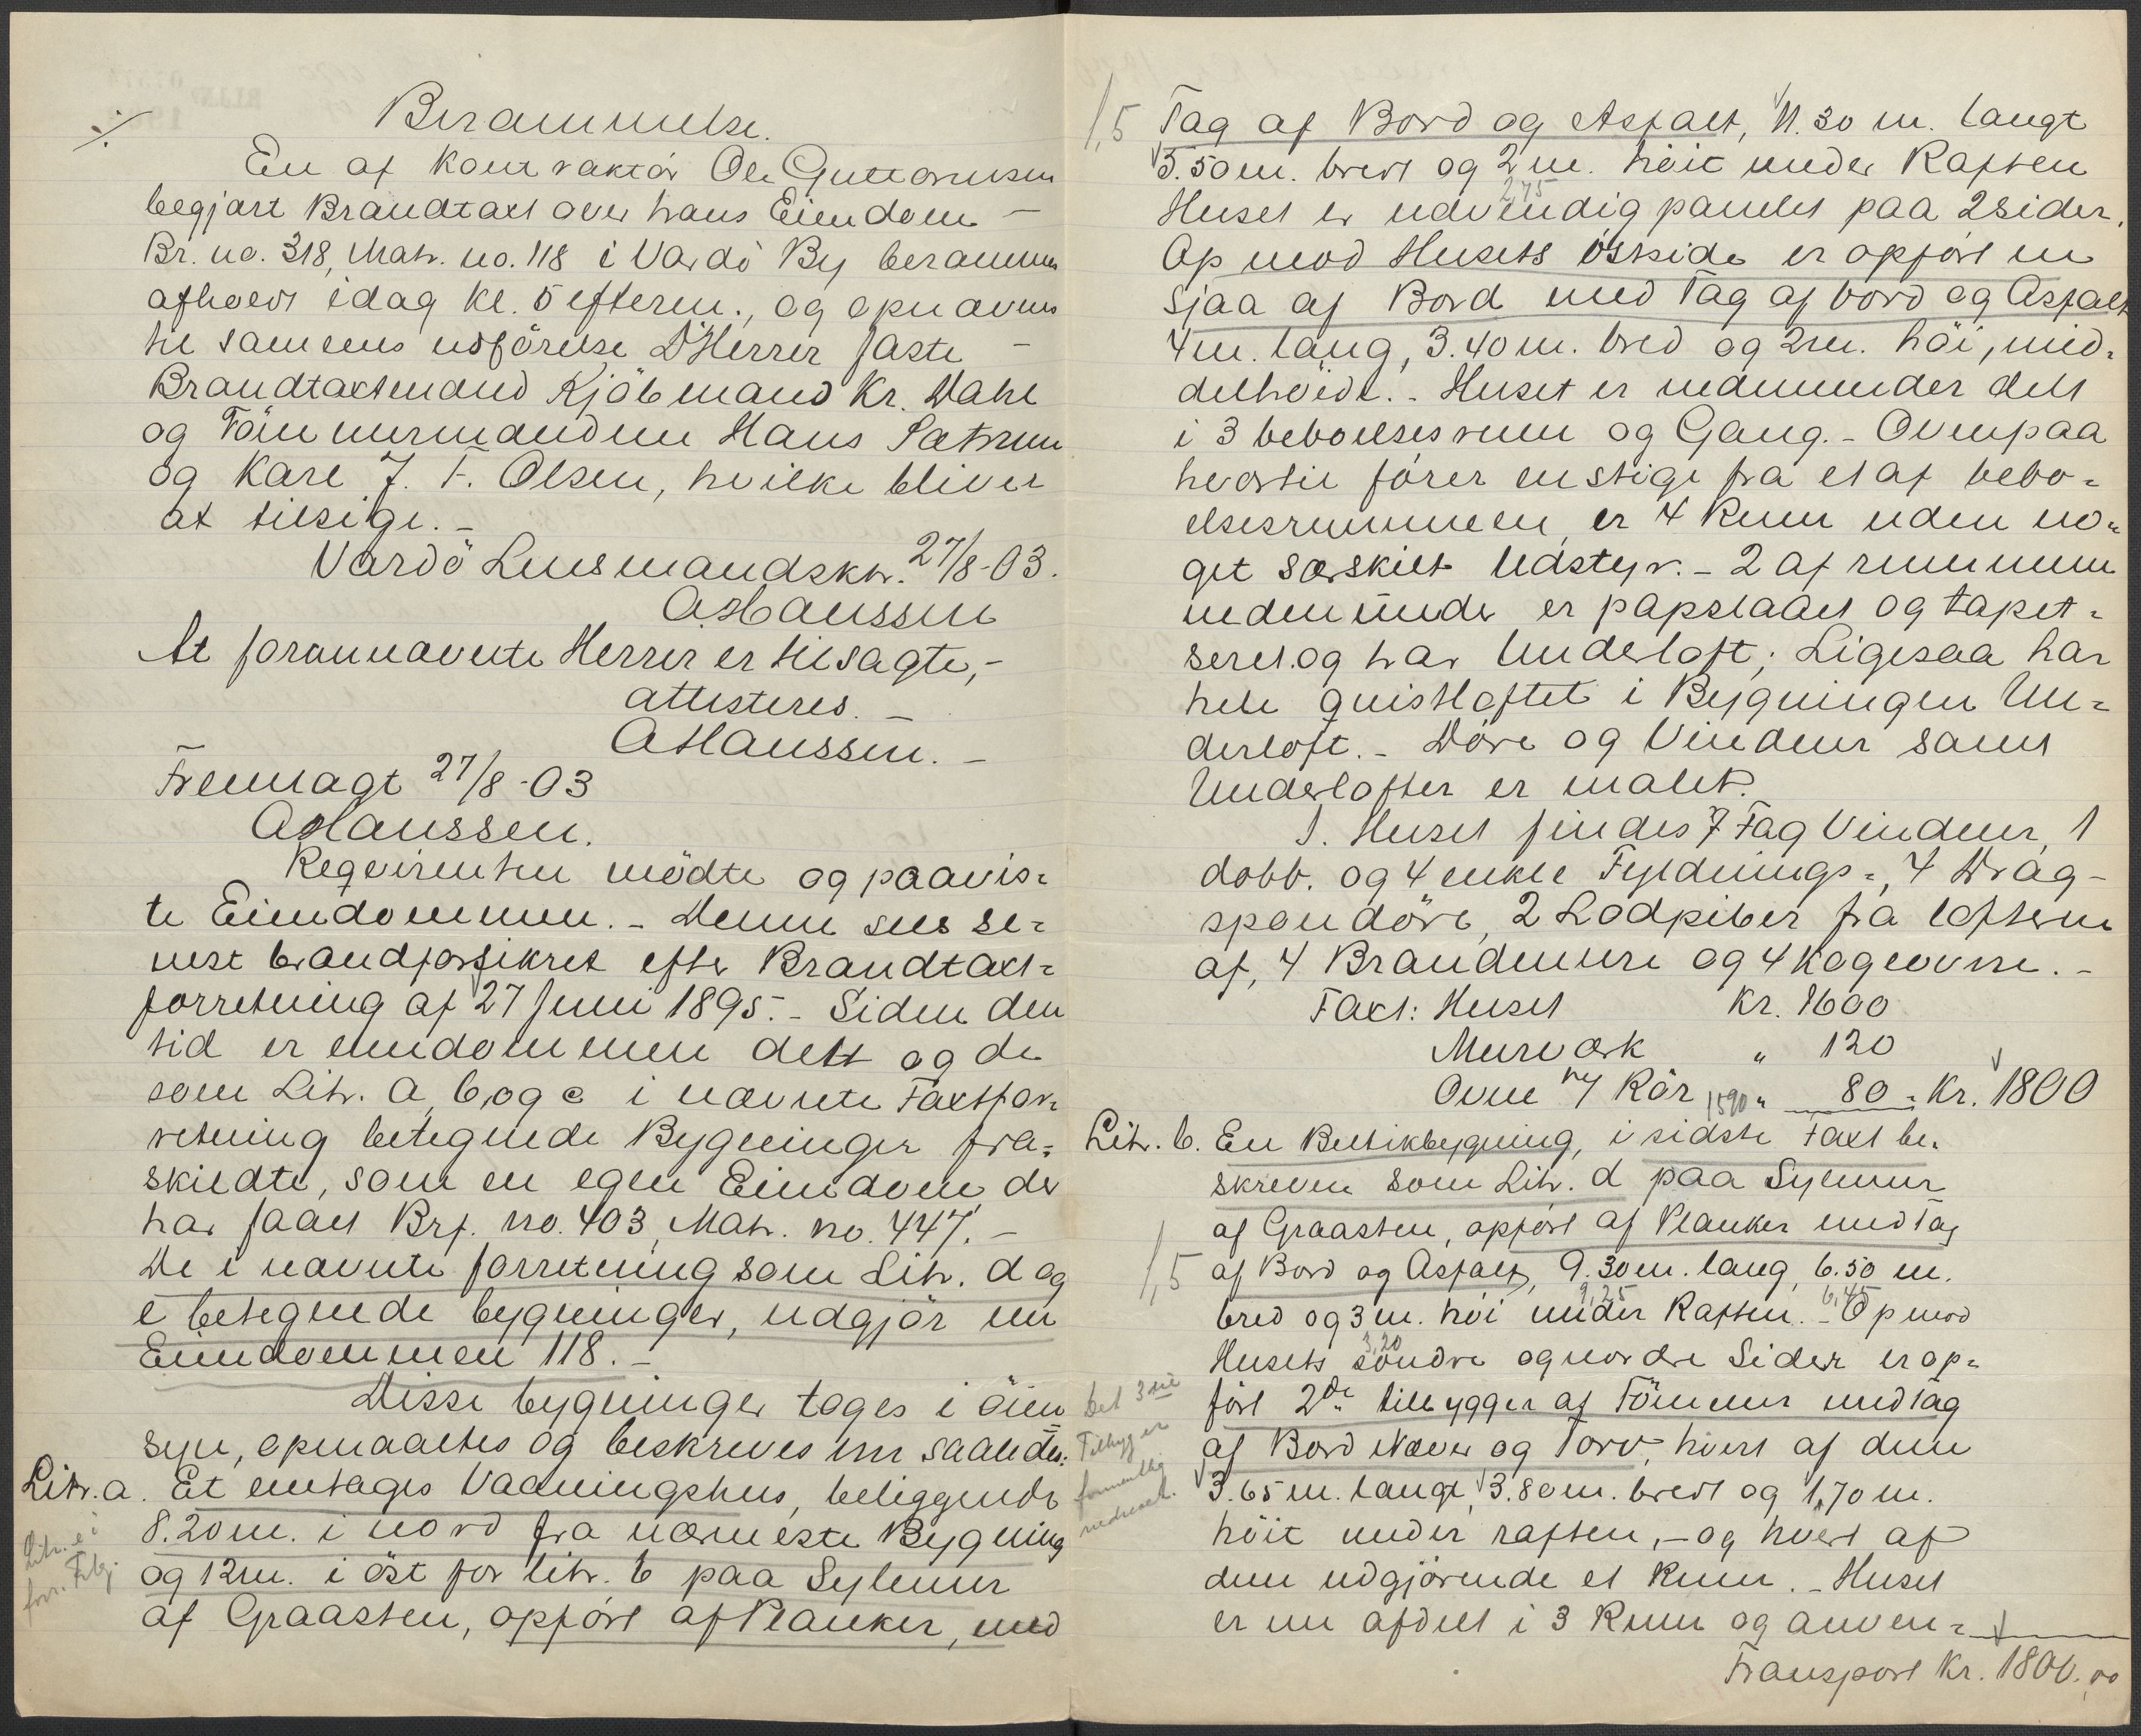 Berammelse.
En af Kontraktör Ole Guttormsen
begjært Brandtaxt over hans Eiendom –
Br. no. 318, Matr. no. 118 i Vardö By berammes
afholdt idag kl. 5 efterm., og opnævnes
til sammens udförelse D'Herrer faste –
Brandtaxtmænd Kjöbmand Kr. Dahl
og Tömmermændene Hans Sætrum
og Karl J. F. Olsen, hvilke bliver
at tilsige. –
Vardö Lensmandsktr. 27/8-03.
A Hanssen
At forannævnte Herrer er tilsagte, –
attesteres. –
A Hanssen. –
Fremlagt 27/8-03
A Hanssen.
Reqvirenten mödte og paavis=
te Eiendommen. – Denne sees se=
nest brandforsikret efter Brandtaxt=
forretning af 27 Juni 1895. – Siden den
tid er eiendommen delt og de
som Litr. a, b, og c i nævnte Taxtfor=
retning betegnede Bygninger fra=
skildte, som en egen Eiendom der
har faaet Brf. no. 403, Matr. no. 447. –
De i nævnte forretning som Litr. d og
e betegnede bygninger, udgjör nu
Eiendommen 118. –
Disse bygninger toges i öien
syn, opmaaltes og beskreves nu saaledes:
Litr. a. Et entages Vaaningshus, beliggende
8.20 m. i nord fra nærmeste Bygning
Litr. e i
forr. Frtg.
og 12 m. i öst for litr. b paa Sylemur
af Graasten, opfört af Planker, med
1,5 Tag af Bord og Asfalt, 11.30 m. langt
5.50 m. bredt og 2 m. höit under Raften
2,75
Huset er udvendig panelet paa 2 sider.
Op mod Husets östside er opfört en
Sjaa af Bord med Tag af bord og Asfalt
4 m. lang, 3.40 m. bred og 2 m. höi, mid=
delhöide. – Huset er nedenunder delt
i 3 beboelsesrum og Gang. – Ovenpaa
hvortil förer en stige fra et af bebo=
elsesrummene, er 4 Rum uden no=
get særskilt Udstyr. – 2 af rummene
nedenunder er papslaaet og tapet=
seret og har Underloft; Ligesaa har
hele qvistloftet i Bygningen Un=
derloft. – Döre og Vinduer samt
Underlofter er malet.
I Huset findes 7 Fag Vinduer, 1
dobb. og 4 enkle Fyldnings=, 4 Drag-
spondöre, 2 Lodpiber fra lofterne
af, 4 Brandmure og 4 Kogeovne. –
Taxt: Huset Kr. 1600
Murværk " 120
Ovne m/ Rör 1590 " 80 = Kr. 1800
Litr. b. En Butikbygning, i sidste Taxt be=
skreven som Litr. d paa Sylemur
af Graasten, opfört af Planker med Tag
1,5 af Bord og Asfalt, 9.30 m. lang, 6.50 m.
9,25 6,45
bred og 3 m. höi under Raften. – Op mod
3,20
Husets söndre og nordre Sider er op=
Det 3die
Tilbyg er
formentlig
nedrevet.
fört 2de tilbygger af Tömmer med Tag
af Bord Næver og Torv, hvert af dem
3.65 m. langt, 3.80 m. bredt og 1,70 m.
höit under raften, – og hvert af
dem udgjörende et Rum. – Huset
er nu afdelt i 3 Rum og anven=
Transport Kr. 1800.00